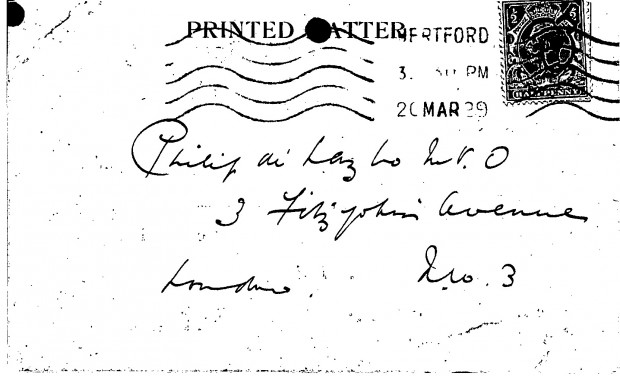 PRINTED MATTER
HERTFORD
PM
20 MAR 29
Philip de Laszlo M.V.O
3 Fitzjohn's Avenue
London. N.W. 3